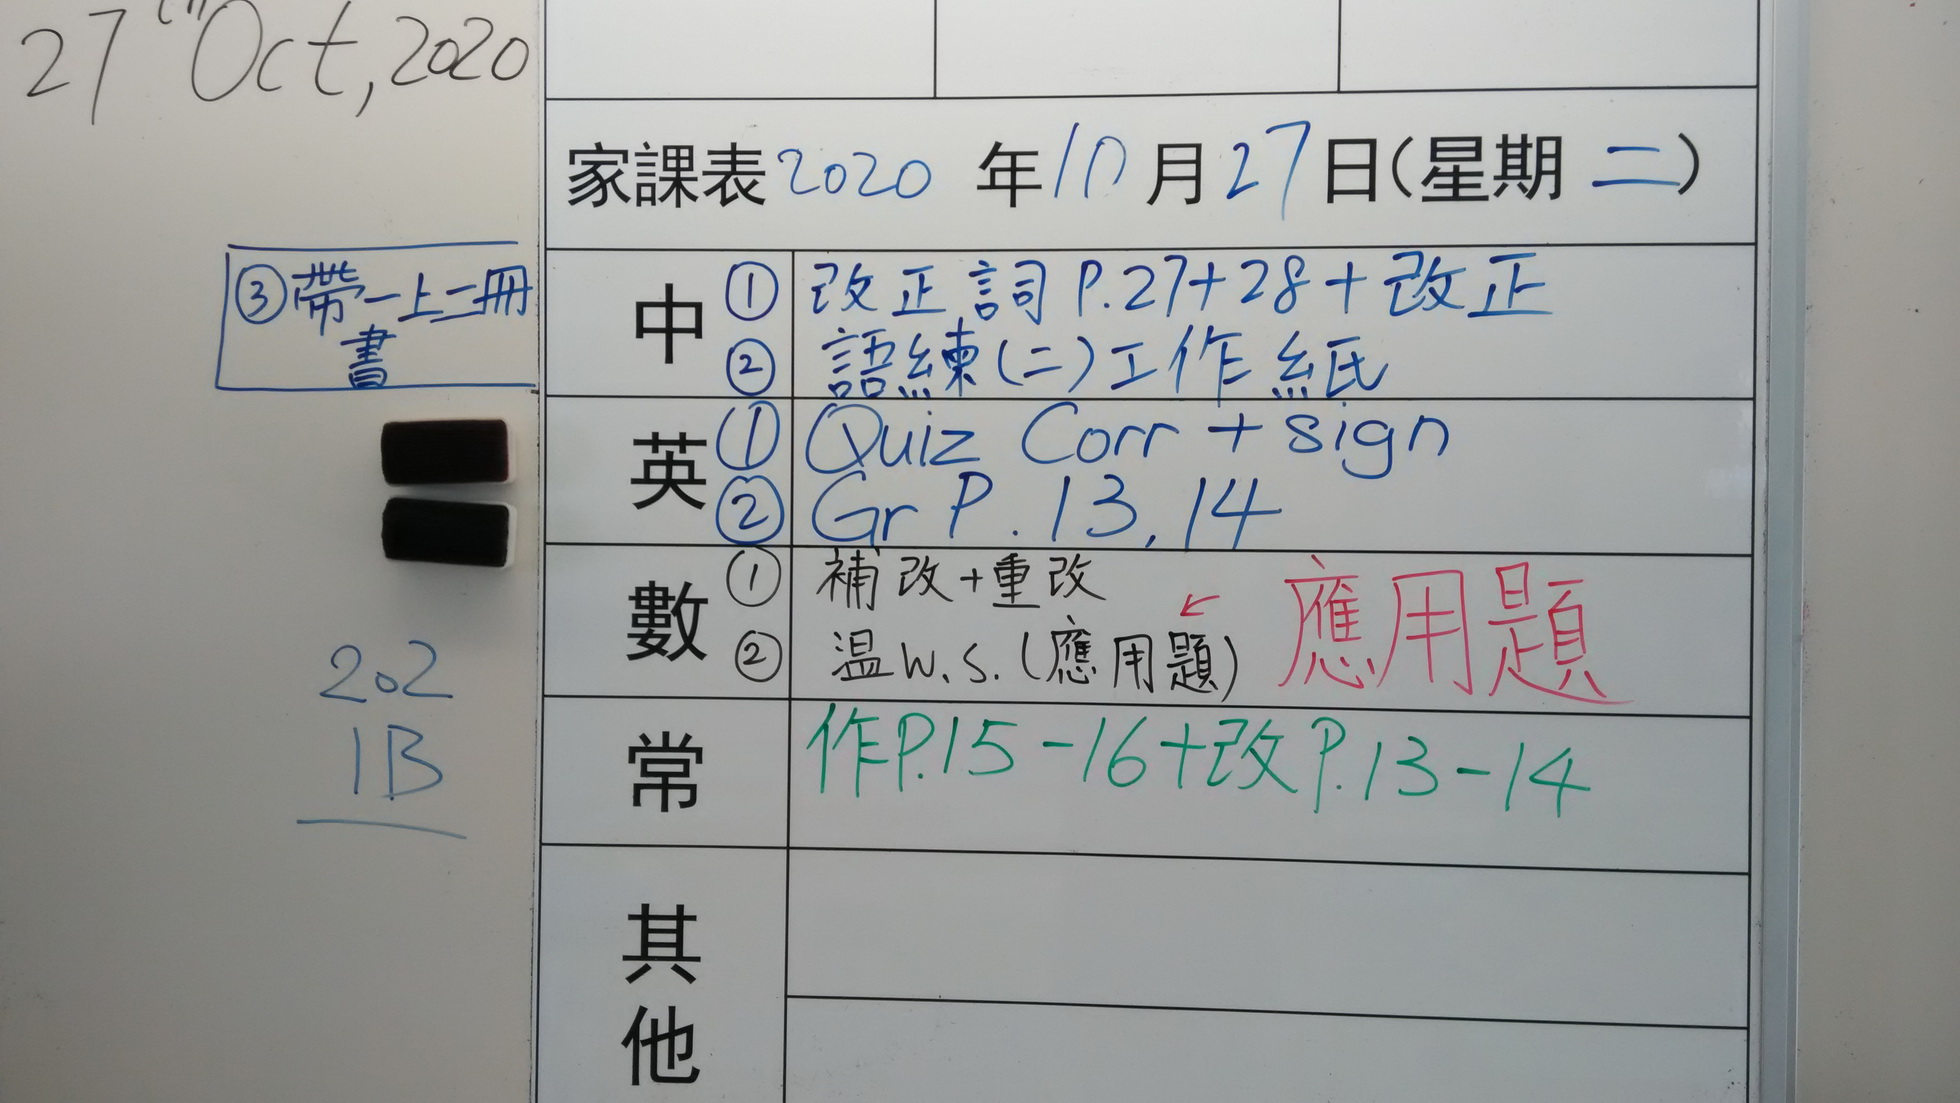 27th Oct, 2020
家課表 2020 年 10 月 27 日(星期 二)
中 ① 改正詞 P.27+28+改正
② 語練(二)工作紙
③帶一上二冊
書
英 ① Quiz Corr + sign
② Gr P. 13, 14
數 ① 補改+重改
② 温 W.S. (應用題) ↙ 應用題
202
1B
常 作P.15-16+改P.13-14
其
他